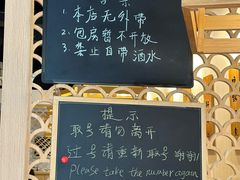 1. 本店无外带
2. 包房暂不开放
3. 禁止自带酒水
提示
取号请勿离开
过号请重新取号 谢谢!
please take the number again